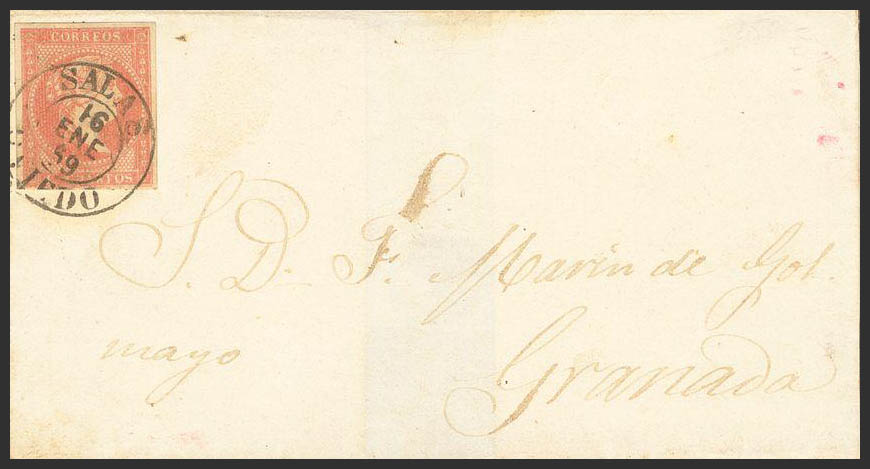 CORREOS
SALAS
16
ENE
59
OVIEDO
S. D. F. Marin de Gol.
mayo
Granada